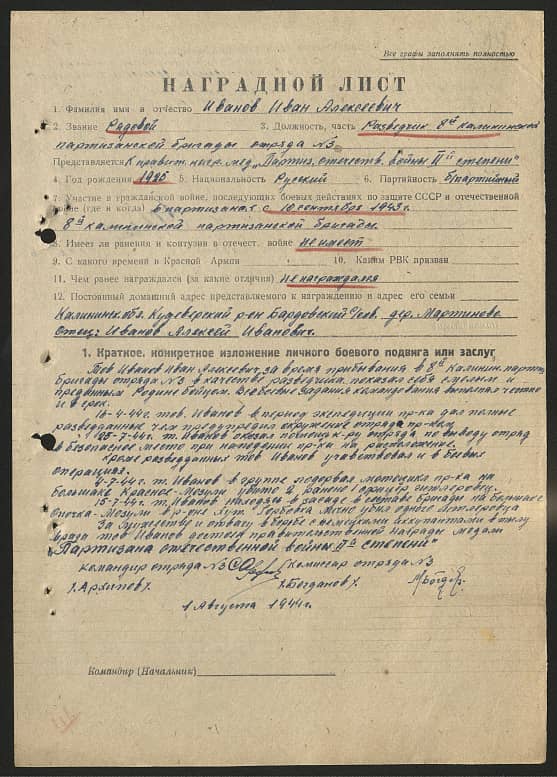 Все графы заполнять полностью
НАГРАДНОЙ ЛИСТ
1. Фамилия имя и отчество Иванов Иван Алексеевич
2. Звание Рядовой 3. Должность, часть Разведчик 8ой Калининской
партизанской бригады отряда №3
Представляется К правит. нагр. мед. „Партиз. отечеств. войны IIй степени"
4. Год рождения 1925 5. Национальность Русский 6. Партийность б/партийный
7. Участие в гражданской войне, последующих боевых действиях по защите СССР и отечественной
войне (где и когда) в партизанах с 10 сентября 1943 г.
8ой калининской партизанской бригады.
8. Имеет ли ранения и контузии в отечест. войне не имеет
9. С какого времени в Красной Армии 10. Каким РВК призван
11. Чем ранее награждался (за какие отличия) Не награждался
12. Постоянный домашний адрес представляемого к награждению и адрес его семьи
Калининск. обл. Кудеверский р-он Бардовский с/сов. дер. Мартиново
Отец: Иванов Алексей Иванович.
1. Краткое, конкретное изложение личного боевого подвига или заслуг
Тов. Иванов Иван Алексеевич за время прибывания в 8ой Калинин. партиз.
бригады отряда №3 в качестве разведчика показал себя смелым и
преданным Родине бойцом. Все боевые задания командования выполнял честно
и в срок.
16-4-44г. тов. Иванов в период экспедиции пр-ка дал полные
разведданные, чем предупредил окружение отряда пр-ком.
25-7-44г. т. Иванов оказал помощь к-ру отряда по выводу отряда
в безопасное место при нападении пр-ка на расположение.
Кроме разведданных тов Иванов участвовал и в боевых
операциях.
4-7-44г. т. Иванов в группе подорвал мотоцикл пр-ка на
большаке Красное-Мозули убито 2, ранен 1 офицер гитлеровец.
15-7-44г. т. Иванов находясь в засаде в составе бригады на большаке
Опочка-Мозули в р-оне хут. Горбовка лично убил одного гитлеровца
За мужество и отвагу в борьбе с немецкими оккупантами в тылу
врага тов Иванов достоен правительственной награды медали
„Партизана отечественной войны IIй степени"
Командир отряда №3 Комиссар отряда №3
/Архипов/ /Богданов/
1 Августа 1944г.
Командир (Начальник)